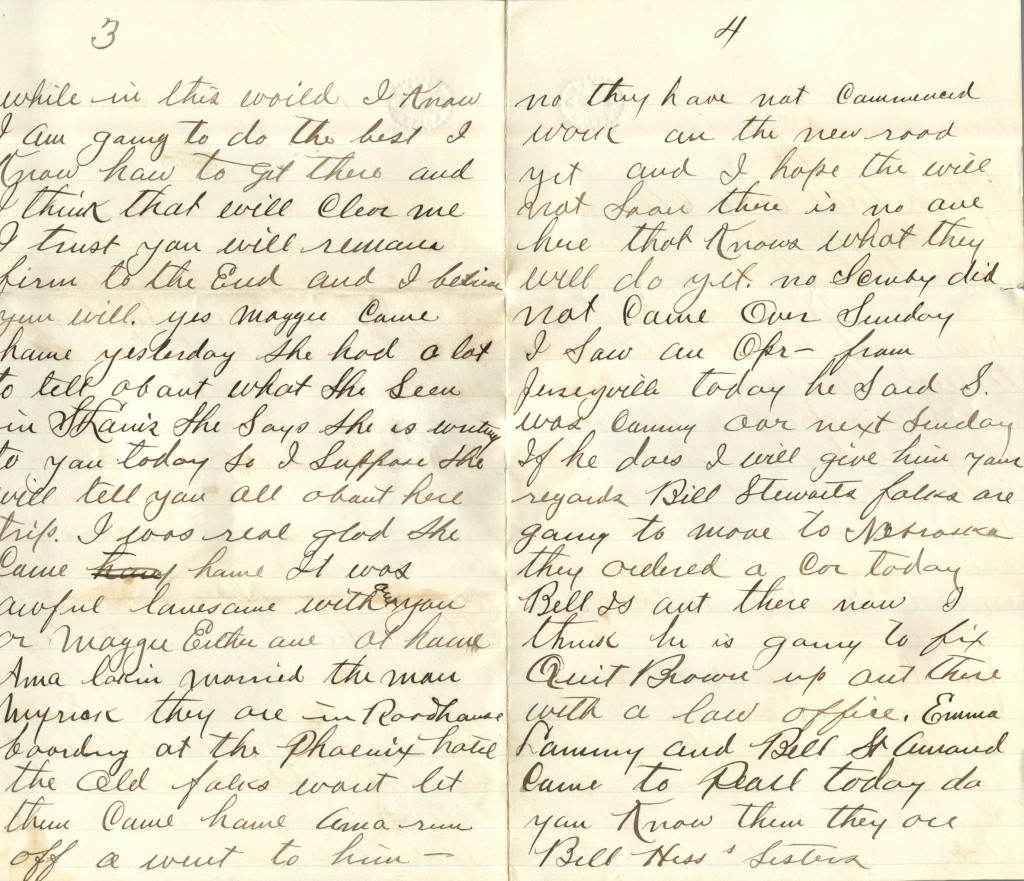 3
while in this world I Know
I am going to do the best I
Know how to get there and
I think that will Clear me
I trust you will remain
firm to the End and I
you will. yes Maggie Came
home yesterday She had a lot
to tell about what She Seen
in St Louis She Says She is writing
to you today So I Suppose She
will tell you all about here
trip. I was real glad She
Came home It was
awful lonesome without you
or Maggie Either one at home
Ama married the man
Myrick they are in Roodhouse
boarding at the Phoenix hotel
the Old folks wont let
them Come home Ama run
off a went to him —
4
no they have not Commenced
work on the new road
yet and I hope the will
not Soon there is no one
here that Knows what they
will do yet. no Scruby did
not Come Over Sunday
I Saw an Opr— from
Jerseyville today he Said S.
was Coming over next Sunday
If he does I will give him your
regards Bill Stewarts folks are
going to move to Nebraska
they ordered a Car today
Bill Is out there now I
think he is going to fix
Quit Brown up out there
with a law office. Emma
Lammy and Bell St Amand
Came to Pearl today do
you Know them they are
Bill Hess's Sisters